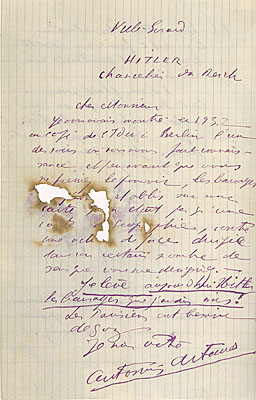 Ville-Evrard
HITLER
Chancelier du Reich
Cher Monsieur
Je vous avais montré en 1932
au café de l'Ider à Berlin l'un
des soirs où nous avons fait connais-
sance et peu avant que vous
ne preniez le pouvoir, les barrages
établis sur une
carte qui n'était pas qu'une
carte de géographie, contre
une action de force dirigée
dans un certain nombre de
sens que vous me désigniez.
Je lève aujourd'hui Hitler
les barrages que j'avais mis!
Les Parisiens ont besoin
de gaz
Je suis votre
Antonin Artaud